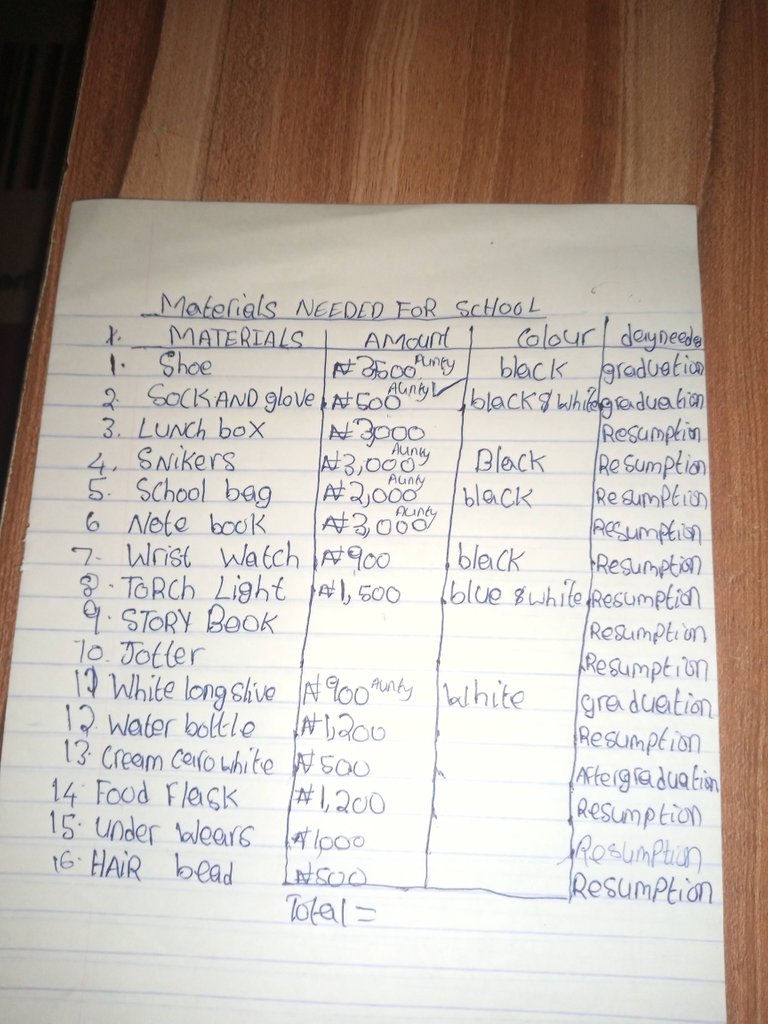 Materials NEEDED FOR SCHOOL
MATERIALS Amount Colour dayneeded
1. Shoe ₦3500 Aunty black graduation
2. SOCK AND glove ₦500 Aunty black & white graduation
3. LUNCH box ₦3000 Resumption
4. SNIKERS ₦3,000 Aunty Black Resumption
5. School bag ₦2,000 black Resumption
6 Note book ₦3,000 Aunty Resumption
7. Wrist Watch ₦900 black Resumption
8. TORCH Light ₦1,500 blue & white Resumption
9. STORY BOOK Resumption
10. Jotter Resumption
11 White longslive ₦900 Aunty White graduation
12. Water bottle ₦1,200 Resumption
13. Cream carowhite ₦500 Aftergraduation
14. Food Flask ₦1,200 Resumption
15. under wears ₦1,000 Resumption
16. HAIR bead ₦500 Resumption
Total =